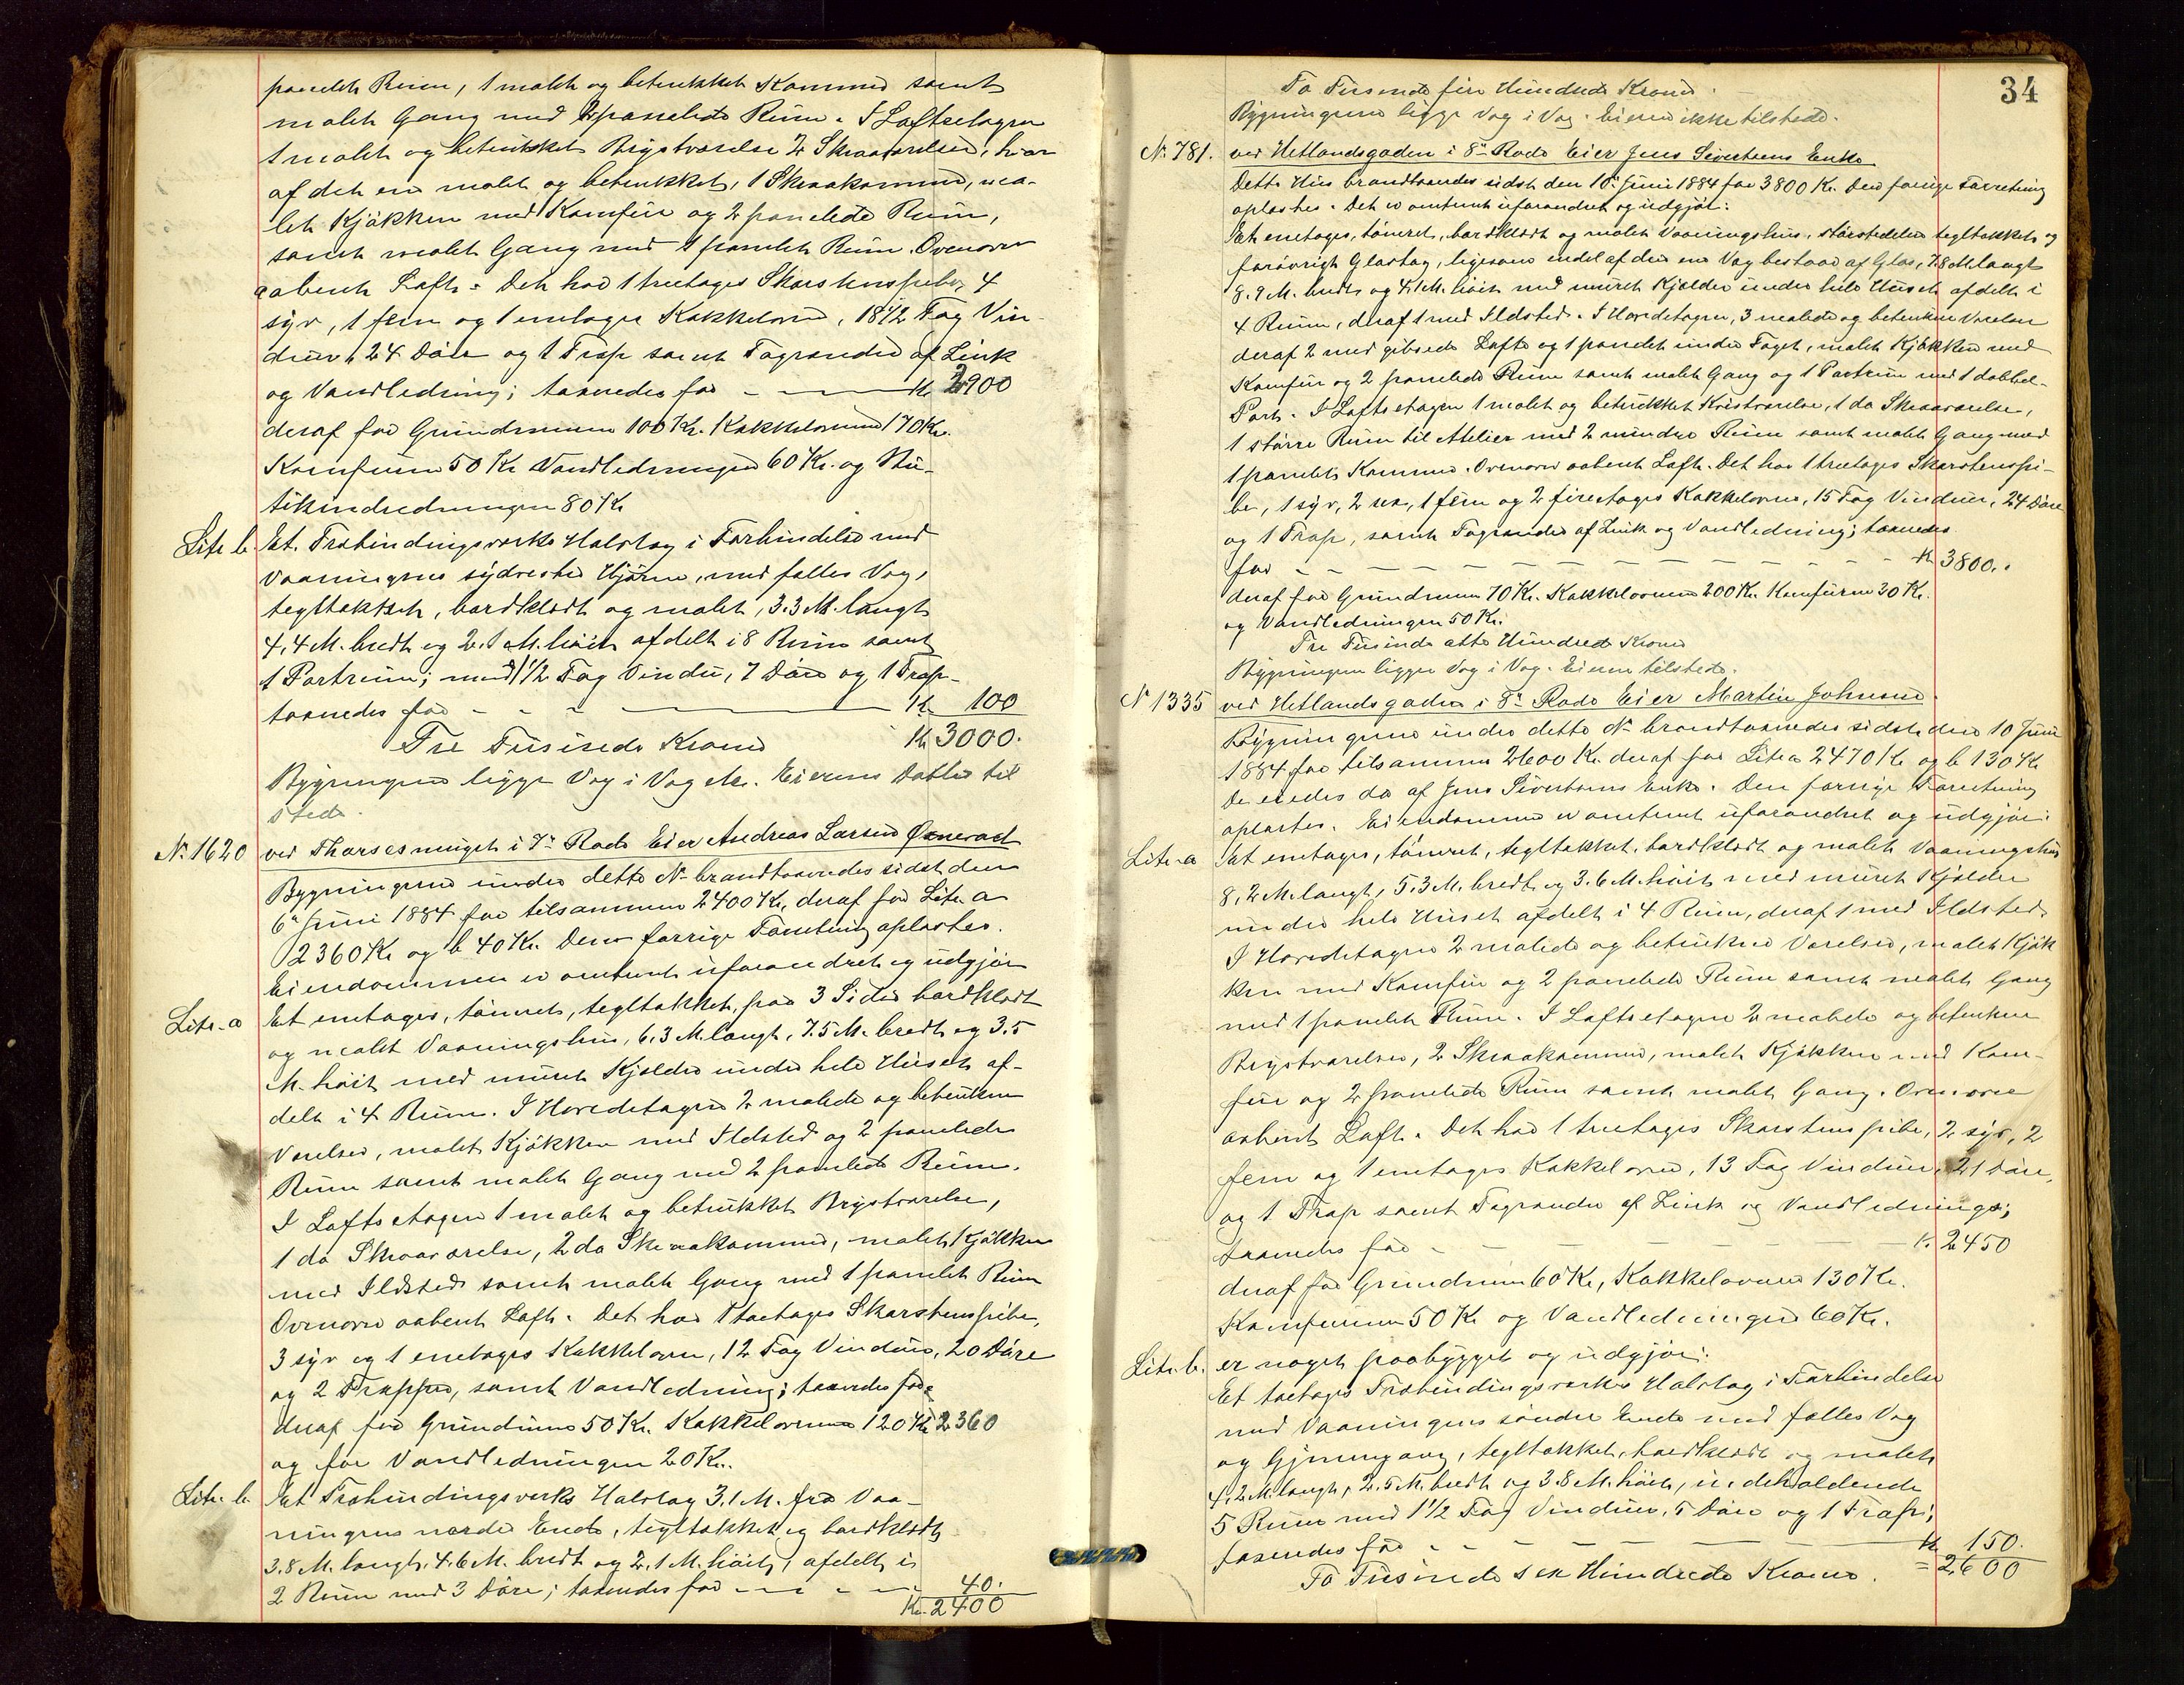 panelet Rum, 1 malet og betrukket Kammer samt
malet Gang med 2 panelede Rum. I Loftsetagen
1 malet og betrukket Brystværelse 2 Skraaværelser, hvor
af det ene malet og betrukket, 1 Skraakammer, ma-
let Kjøkken med Komfur og 2 panelede Rum,
samt malet Gang med 1 panelet Rum. Ovenover
aabent Loft. Det har 1 treetages Skorstenspibe, 4
syv, 1 fem og 1 enetages Kakkelovne, 18 1/2 Fag Vin-
duer, 24 Døre og 1 Trap samt Tagrender af Zink
og Vandledning; taxeredes for - Kr 2900
deraf for Grundmuren 100 Kr. Kakkelovnene 170 Kr.
Komfurene 50 Kr Vandledningen 60 Kr. og
80 Kr
Litr. b. Et Træbindingsværks Halvtag i Forbindelse med
Vaaningens sydvestre Hjørne, med fælles Væg,
tegltækket, bordklædt og malet, 3.3 M. langt
4,4 M. bredt og 2.1 M. høit afdelt i 8 Rum samt
1 Portrum; med 1 1/2 Fag Vindu, 7 Døre og 1 Trap
taxeredes for - - - Kr 100
Tre Tusinde Kroner Kr 3000.
Bygningerne ligge Væg i Væg. Eierens Datter til
stede.
No. 1620 ved Thorsesmuget i 7de Rode Eier Andreas Larsen Øxnevad
Bygningerne under dette No brandtaxeredes sidst den
6te Juni 1884 for tilsammen 2400 Kr, deraf for Litr. a
2360 Kr og b 40 Kr. Den forrige Forretning oplæstes.
Eiendommen er omtrent uforandret og udgjør
Litr. a Et enetages, tømret, tegltækket, paa 3 Sider bordklædt
og malet Vaaningshus, 6,3 M. langt, 7.5 M. bredt og 3.5
M. høit med muret Kjælder under hele Huset af-
delt i 4 Rum. I Hovedetagen 2 malede og betrukne
Værelser, malet Kjøkken med Ildsted og 2 panelede
Rum samt malet Gang med 2 panelede Rum.
I Loftsetagen 1 malet og betrukket Brystværelse,
1 do Skraaværelse, 2 do Skraakammer, malet Kjøkken
med Ildsted samt malet Gang med 1 panelet Rum
Ovenover aabent Loft. Det har 1 toetages Skorstenspibe,
3 syv og 1 enetages Kakkelovn, 12 Fag Vinduer, 20 Døre
og 2 Trapper, samt Vandledning; taxeredes for
deraf for Grundmuren 50 Kr. Kakkelovnene 120 Kr 2360
og for Vandledningen 20 Kr.
Litr. b. Et Træbindingsværks Halvtag 3,1 M. fra Vaa-
ningens nordre Ende, tegltækket og bordklædt
3.8 M. langt, 4.6 M. bredt og 2.1 M. høit, afdelt i
2 Rum med 3 Døre; taxeredes for - - - 40.
Kr. 2400
34
To Tusinde fire Hundrede Kroner.
Bygningerne ligge Væg i Væg. Eieren ikke tilstede.
No. 781. ved Hetlandsgaden i 8de Rode Eier Jens Sivertsens Enke
Dette Hus brandtaxeredes sidst den 10. Juni 1884 for 3800 Kr. Den forrige Forretning
oplæstes. Det er omtrent uforandret og udgjør:
Et enetages, tømret, bordklædt og malet Vaaningshus, størstedelen tegltækket og
forøvrigt Glastag, ligesom endel af den ene Væg bestaar af Glas, 7.8 M. langt
8.9 M. bredt og 4.1 M. høit med muret Kjælder under hele Huset afdelt i
4 Rum, deraf 1 med Ildsted. I Hovedetagen, 3 malede og betrukne Værelser
deraf 2 med gibsede Lofte og 1 panelet under Taget, malet Kjøkken med
Komfur og 2 panelede Rum samt malet Gang og 1 Portrum med 1 dobbel-
Port. I Loftsetagen 1 malet og betrukket Kvistværelse, 1 do Skraaværelse,
1 større Rum til Atelier med 2 mindre Rum samt malet Gang med
1 panelet Kammer. Ovenover aabent Loft. Det har 1 treetages Skorstenspi-
be, 1 syv, 2 sex, 1 fem og 2 fireetages Kakkelovne, 15 Fag Vinduer, 24 Døre
og 1 Trap, samt Tagrender af Zink og Vandledning; taxeredes
for - - - Kr 3800.
deraf for Grundmuren 70 Kr. Kakkelovnene 200 Kr. Komfuren 30 Kr.
og Vandledningen 50 Kr.
Tre Tusinde otte Hundrede Kroner
Bygningen ligger Væg i Væg. Eieren tilstede.
No 1335 ved Hetlandsgaden i 8de Rode Eier Martin Johnsen
Bygningerne under dette No brandtaxeredes sidst den 10 Juni
1884 for tilsammen 2600 Kr. deraf for Litr a 2470 Kr og b 130 Kr
De eiedes da af Jens Sivertsens Enke. Den forrige Forretning
oplæstes. Eiendommen er omtrent uforandret og udgjør:
Litr. a Et enetages, tømret, tegltækket, bordklædt og malet Vaaningshus
8,2 M. langt, 5.3 M. bredt og 3.6 M. høit med muret Kjælder
under hele Huset afdelt i 4 Rum, deraf 1 med Ildsted.
I Hovedetagen 2 malede og betrukne Værelser, malet Kjøk
ken med Komfur og 2 panelede Rum samt malet Gang
med 1 panelet Rum. I Loftsetagen 2 malede og betrukne
Brystværelser, 2 Skraakammer, malet Kjøkken med Kom-
fur og 2 panelede Rum samt malet Gang. Ovenover
aabent Loft. Det har 1 treetages Skorstenspibe, 2 syv, 2
fem og 1 enetages Kakkelovne, 13 Fag Vinduer, 21 Døre,
og 1 Trap samt Tagrender af Zink og Vandledning;
taxeredes for - - - Kr. 2450
deraf for Grundmuren 60 Kr, Kakkelovnene 130 Kr.
Komfurene 50 Kr og Vandledningen 60 Kr.
Litr. b. er noget paabygget og udgjør:
Et toetages Træbindingsværks Halvtag i Forbindelse
med Vaaningens søndre Ende med fælles Væg
og Gjennemgang, tegltækket, bordklædt og malet
4,2 M. langt, 2.5 M. bredt og 3.8 M. høit, indeholdende
5 Rum med 1 1/2 Fag Vinduer, 5 Døre og 1 Trap;
taxeredes for - - - Kr 150.
To Tusinde sex Hundrede Kroner. = 2600